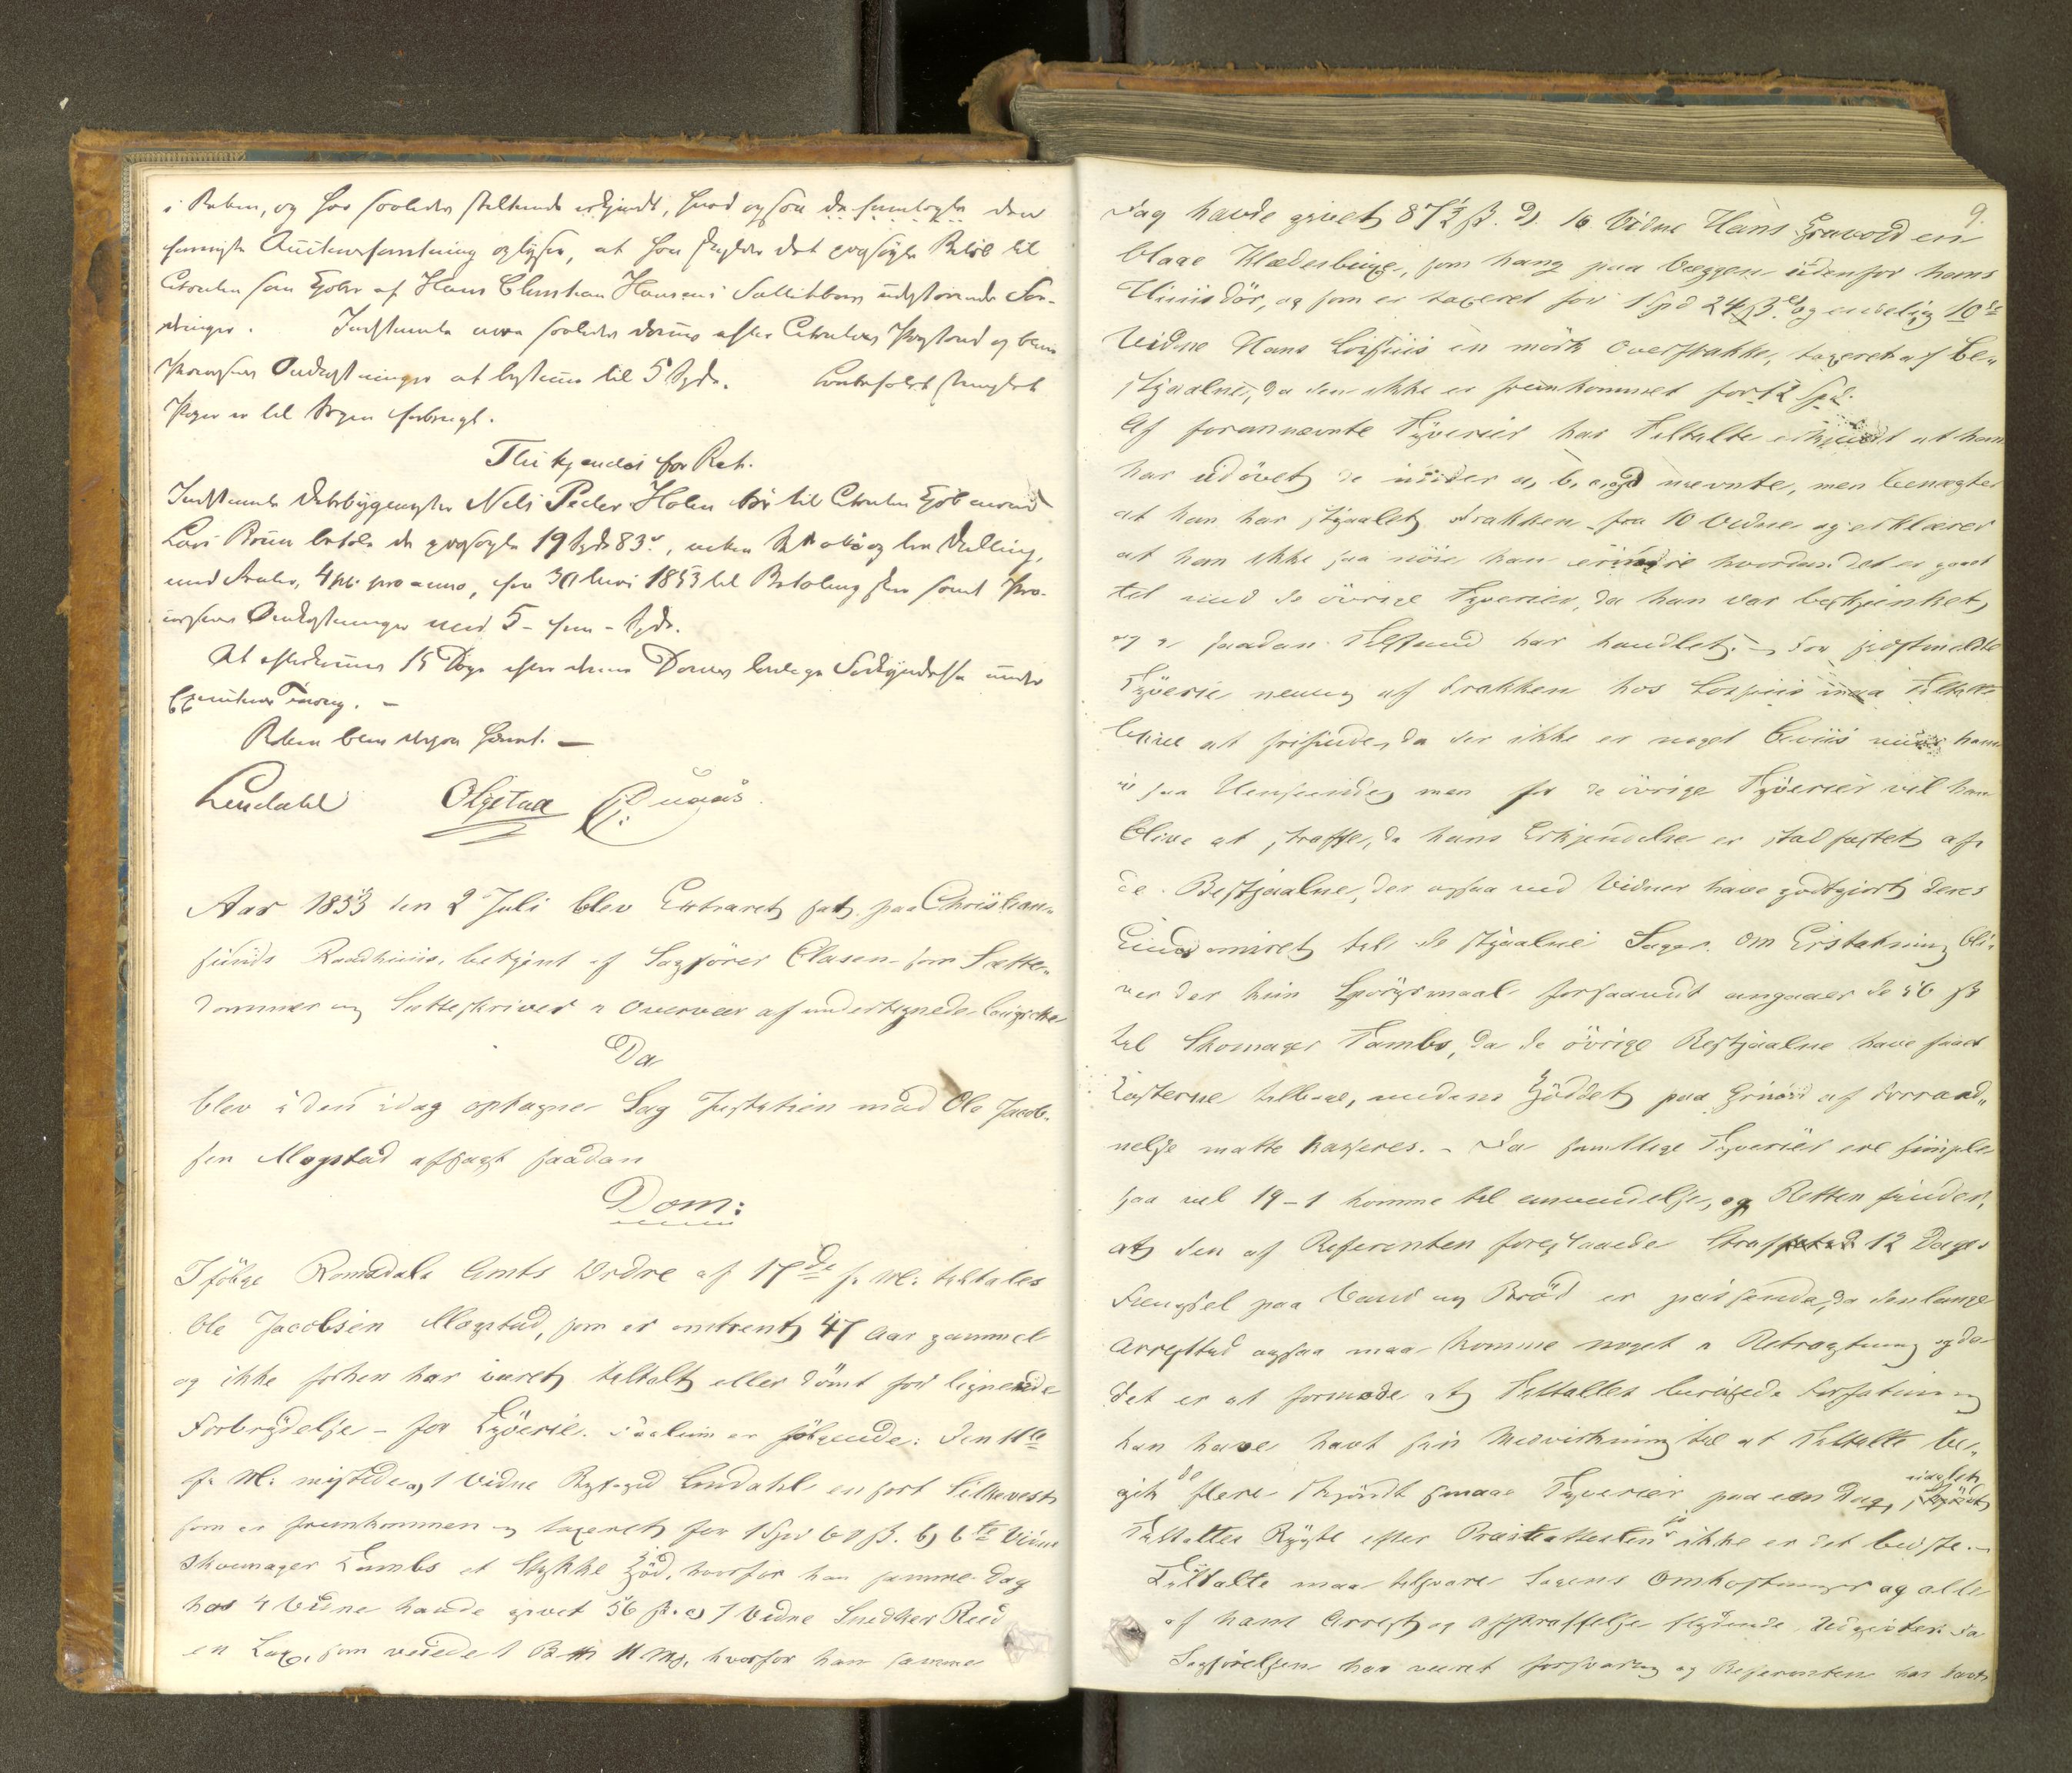 i Retten, og har saaledes stiltiende erkjendt, hvad ogsaa de fremlagte
Auctionsforretning oplyser, at han skylder det paasøgte Beløb til
Citanten som Kjøber af Hans Christian Hansens udestaaende For-
dringer. Indstevnte maa saaledes dømmes efter Citantens Paastand og
Processens Omkostninger at bestemme til 5 Spd. Contrafoleret stemplet
Papir er til Sagen forbrugt.
Thi kjendes for Ret:
Indstevnte Nels Peder Holen bør til Citanten Kjøbmand
Lars Bruun betale de paasøgte 19 Spd 83 s,
med Renter, 4 pC. pro anno, fra 30 1853 til Betaling skeer samt Pro-
cessens Omkostninger med 5 - fem - Spd.
At efterkommes 15 Dage efter denne Doms lovlige Forkyndelse under
Executions Tvang. -
Retten blev derpaa hævet. -
Lindahl Olystad
Aar 1853 den 2 Juli blev Extraret sat paa Christian-
sunds Raadhuus, betjent af Sagfører Clasen som Sætte-
dommer og Sætteskriver i Overvær af undertegnede Laugrettes
Da
blev i den idag optagne Sag Justitien mod Ole Jacob-
sen Mogstad afsagt saadan
Dom:
Ifølge Romsdals Amts Ordre af 17de f. M. tiltales
Ole Jacobsen Mogstad, som er omtrent 47 Aar gammel
og ikke forhen har været tiltalt eller dømt for lignende
Forbrydelse - for Tyverie. Factum er følgende: Den 11te
f. M. mistede a) 1 Vidne Lindahl en sort Silkevest
som er fremkommen og taxeret for 1 Spd 60 ß. b) 6te Vidne
Skomager Tambs et Stykke Kjød, hvorfor han samme Dag
hos 4 Vidne havde givet 56 ß. c) 7 Vidne Snedker Reed
en Lax, som veiede 1 B 11 Mk, hvorfor han samme
9.
Dag havde givet 87½ ß. d) 16 Vidne Hans Grøvold en
blaae Klædesbuxe, som hang paa Væggen udenfor hans
Huusdør, og som er taxeret for 1 Spd 24 ß. og endelig e) 10de
Vidne Hans en mørk Overfrakke, taxeret af Be-
stjaalne, da den ikke er fremkommet for 12 Spd.
Af forannævnte Tyverier har Tiltalte erkjendt at han
har udøvet de under a, b, c, og d nævnte, men benægter
at han har stjaalet Frakken fra 10 Vidne og erklærer
at han ikke saa nøie kan erindre hvordan det er gaaet
til med de øvrige Tyverier, da han var beskjenket
og i saadan Tilstand har handlet. - For sidstmeldte
Tyverie nemlig af Frakken hos maa Tiltalte
blive at frifinde, da der ikke er noget Beviis mod ham
i saa Henseende, men for de øvrige Tyverier vil han
blive at straffe, da hans Erkjendelse er stadfæstet af
de Bestjaalne, der ogsaa ved Vidner have godtgjort deres
Eiendomsret til de stjaalne Sager. Om Erstatning bli-
ver der kun Spørgsmaal forsaavidt angaaer de 56 ß
til Skomager Tambs, da de øvrige Bestjaalne have faaet
Kosterne tilbage, medens Kjødet paa Grund af Forraad-
nelse maatte kasseres. - Da samtlige Tyverier ere simple
saa vil 19-1 komme til anvendelse, og Retten finder,
at den af Referenten foreslaaede Straf 12 Dages
Fængsel paa Vand og Brød er passende, da den lange
Arresttid ogsaa maa komme noget i Betragtning og da
det er at formode at Tiltaltes berusede Forfatning
kan have havt sin Medvirkning til at Tiltalte be-
gik de flere skjøndt smaae Tyverier paa een Dag,
Tiltaltes Rygte efter Præsteattesten jo ikke er det bedste. -
Tiltalte maa tilsvare Sagens Omkostninger og alle
af hans Arrest og Afstraffelse flydende Udgivter. Da
Sagførelsen har været forsvarlig og Referenten har havt